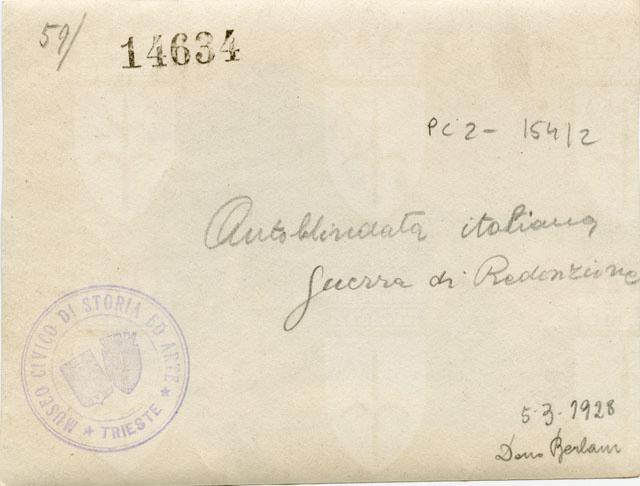 59/
14634
PC 2 - 154/2
Autoblindata italiana
guerra di Redenzione
MUSEO CIVICO DI STORIA ED ARTE
★ TRIESTE ★
5-3-1928
Dono Berlam